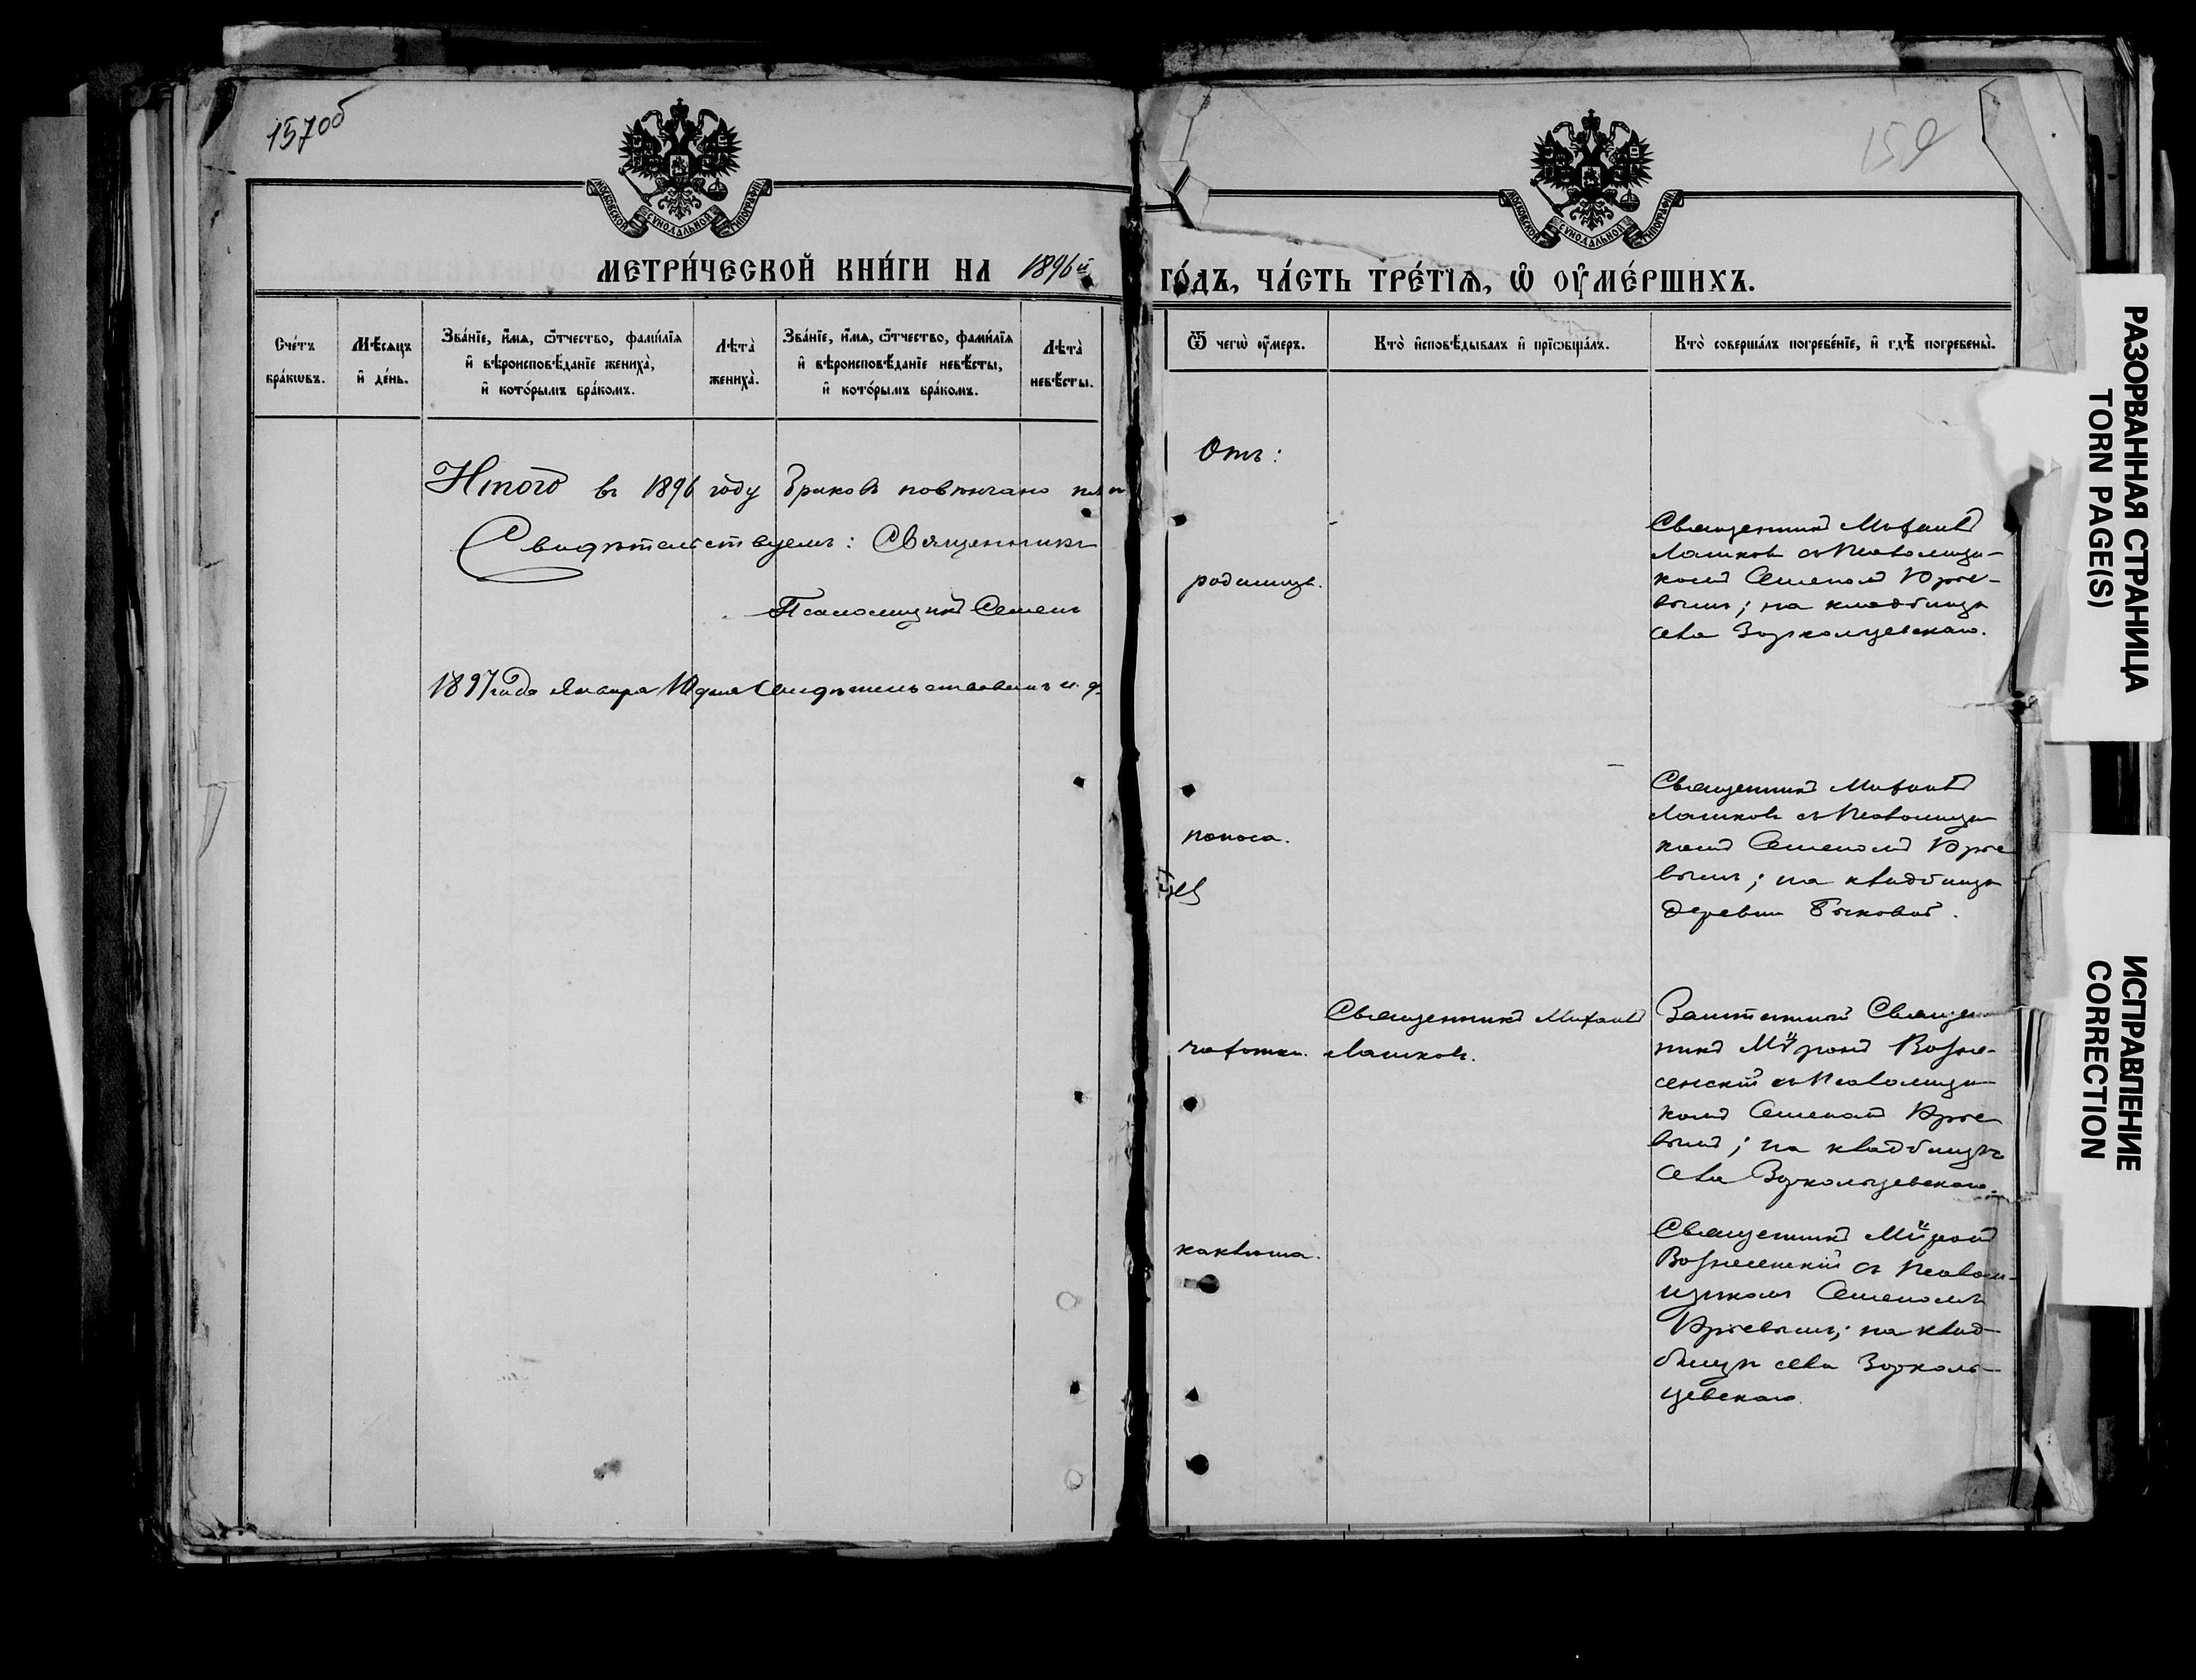 157об
МОСКОВСКОЙ СѴНОДАЛЬНОЙ ТИПОГРАФІИ
МЕТРИ́ЧЕСКОЙ КНИ́ГИ НА 1896й
Сче́тъ бра́кѡвъ.
Мѣ́сѧцъ и҆ де́нь.
Зва́нїе, и҆́мѧ, ѻ҆́тчество, фами́лїѧ и҆ вѣроисповѣ́данїе жениха̀, и҆ кото́рымъ бра́комъ.
Лѣта̀ жениха̀.
Зва́нїе, и҆́мѧ, ѻ҆́тчество, фами́лїѧ и҆ вѣроисповѣ́данїе невѣ́сты, и҆ кото́рымъ бра́комъ.
Лѣта̀ невѣ́сты.
Итого въ 1896 году браковъ повѣнчано
Свидѣтельствуемъ: Священникъ
Псаломщикъ Семенъ
1897 года Января 10 дня Свидѣтельствовалъ и. д.
МОСКОВСКОЙ СѴНОДАЛЬНОЙ ТИПОГРАФІИ
ГО́ДЪ, ЧА́СТЬ ТРЕ́ТІѦ, Ѡ҆ ОУ҆МЕ́РШИХЪ.
Ѿ чегѡ̀ ᲂу҆́меръ.
Кто̀ и҆сповѣ́дывалъ и҆ прїѡбща́лъ.
Кто̀ соверша́лъ погребе́нїе, и҆ гдѣ̀ погребены̀.
Отъ:
родимца.
Священникъ Михаилъ
Лашковъ съ Псаломщи-
комъ Семеномъ
вымъ; на кладбищѣ
села Зоркольцевскаго.
поноса.
Священникъ Михаилъ
Лашковъ съ Псаломщи
комъ Семеномъ
вымъ; на кладбищѣ
деревни Быковой.
чахотки.
Священникъ Михаилъ
Лашковъ.
Заштатный Священ
никъ Мѵронъ Возне-
сенскій съ Псаломщи
комъ Семеномъ
вымъ; на кладбищѣ
села Зоркольцевскаго.
коклюша.
Священникъ Мѵронъ
Вознесенскій съ Псалом-
щикомъ Семеномъ
на клад-
бищѣ села Зорколь-
цевскаго.
РАЗОРВАННАЯ СТРАНИЦА
TORN PAGE(S)
ИСПРАВЛЕНИЕ
CORRECTION